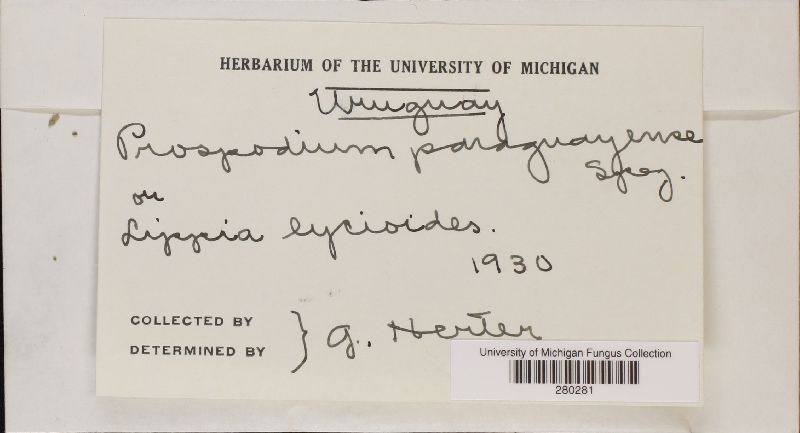 HERBARIUM OF THE UNIVERSITY OF MICHIGAN
Uruguay
Prospodium paraguayense
Speg.
on
Lippia lycioides.
1930
COLLECTED BY
DETERMINED BY } G. Herter
University of Michigan Fungus Collection
280281